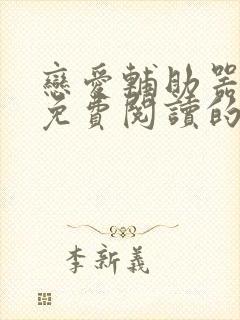 戀愛輔助器
免費閱讀的
李新義